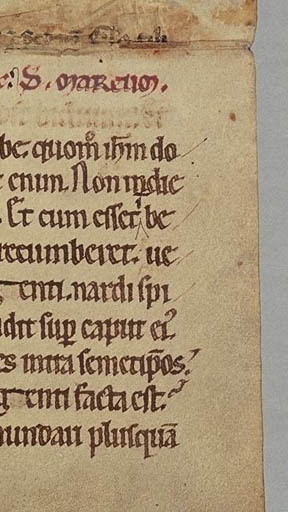 S. marcum.
be. quom̊ ihm̄ do
enim. Non in die
. Et cum esset be
recumberet. ue
genti. nardi spi
dit sup̲ caput ei᾽.
es intra semetip̄os.
genti facta est.
nundari plusquā